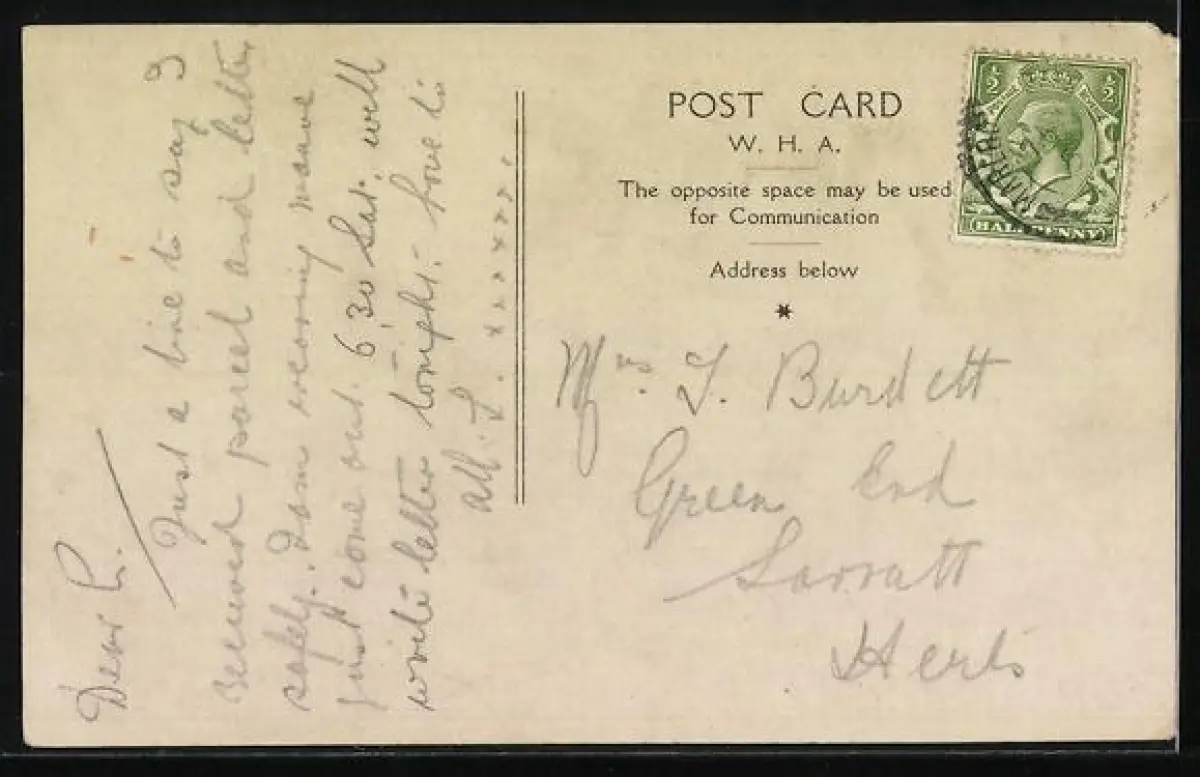 POST CARD
W. H. A.
The opposite space may be used
for Communication
Address below
*
½ ½
HALFPENNY
Mrs. T. Burdett
Green End
Sarratt
Herts
Dear
Just a line to say I
received parcel and letter
safely. wearing mauve
just come out. 6.30 Sat. will
write letter tonight. love to
all. x x x x x x.